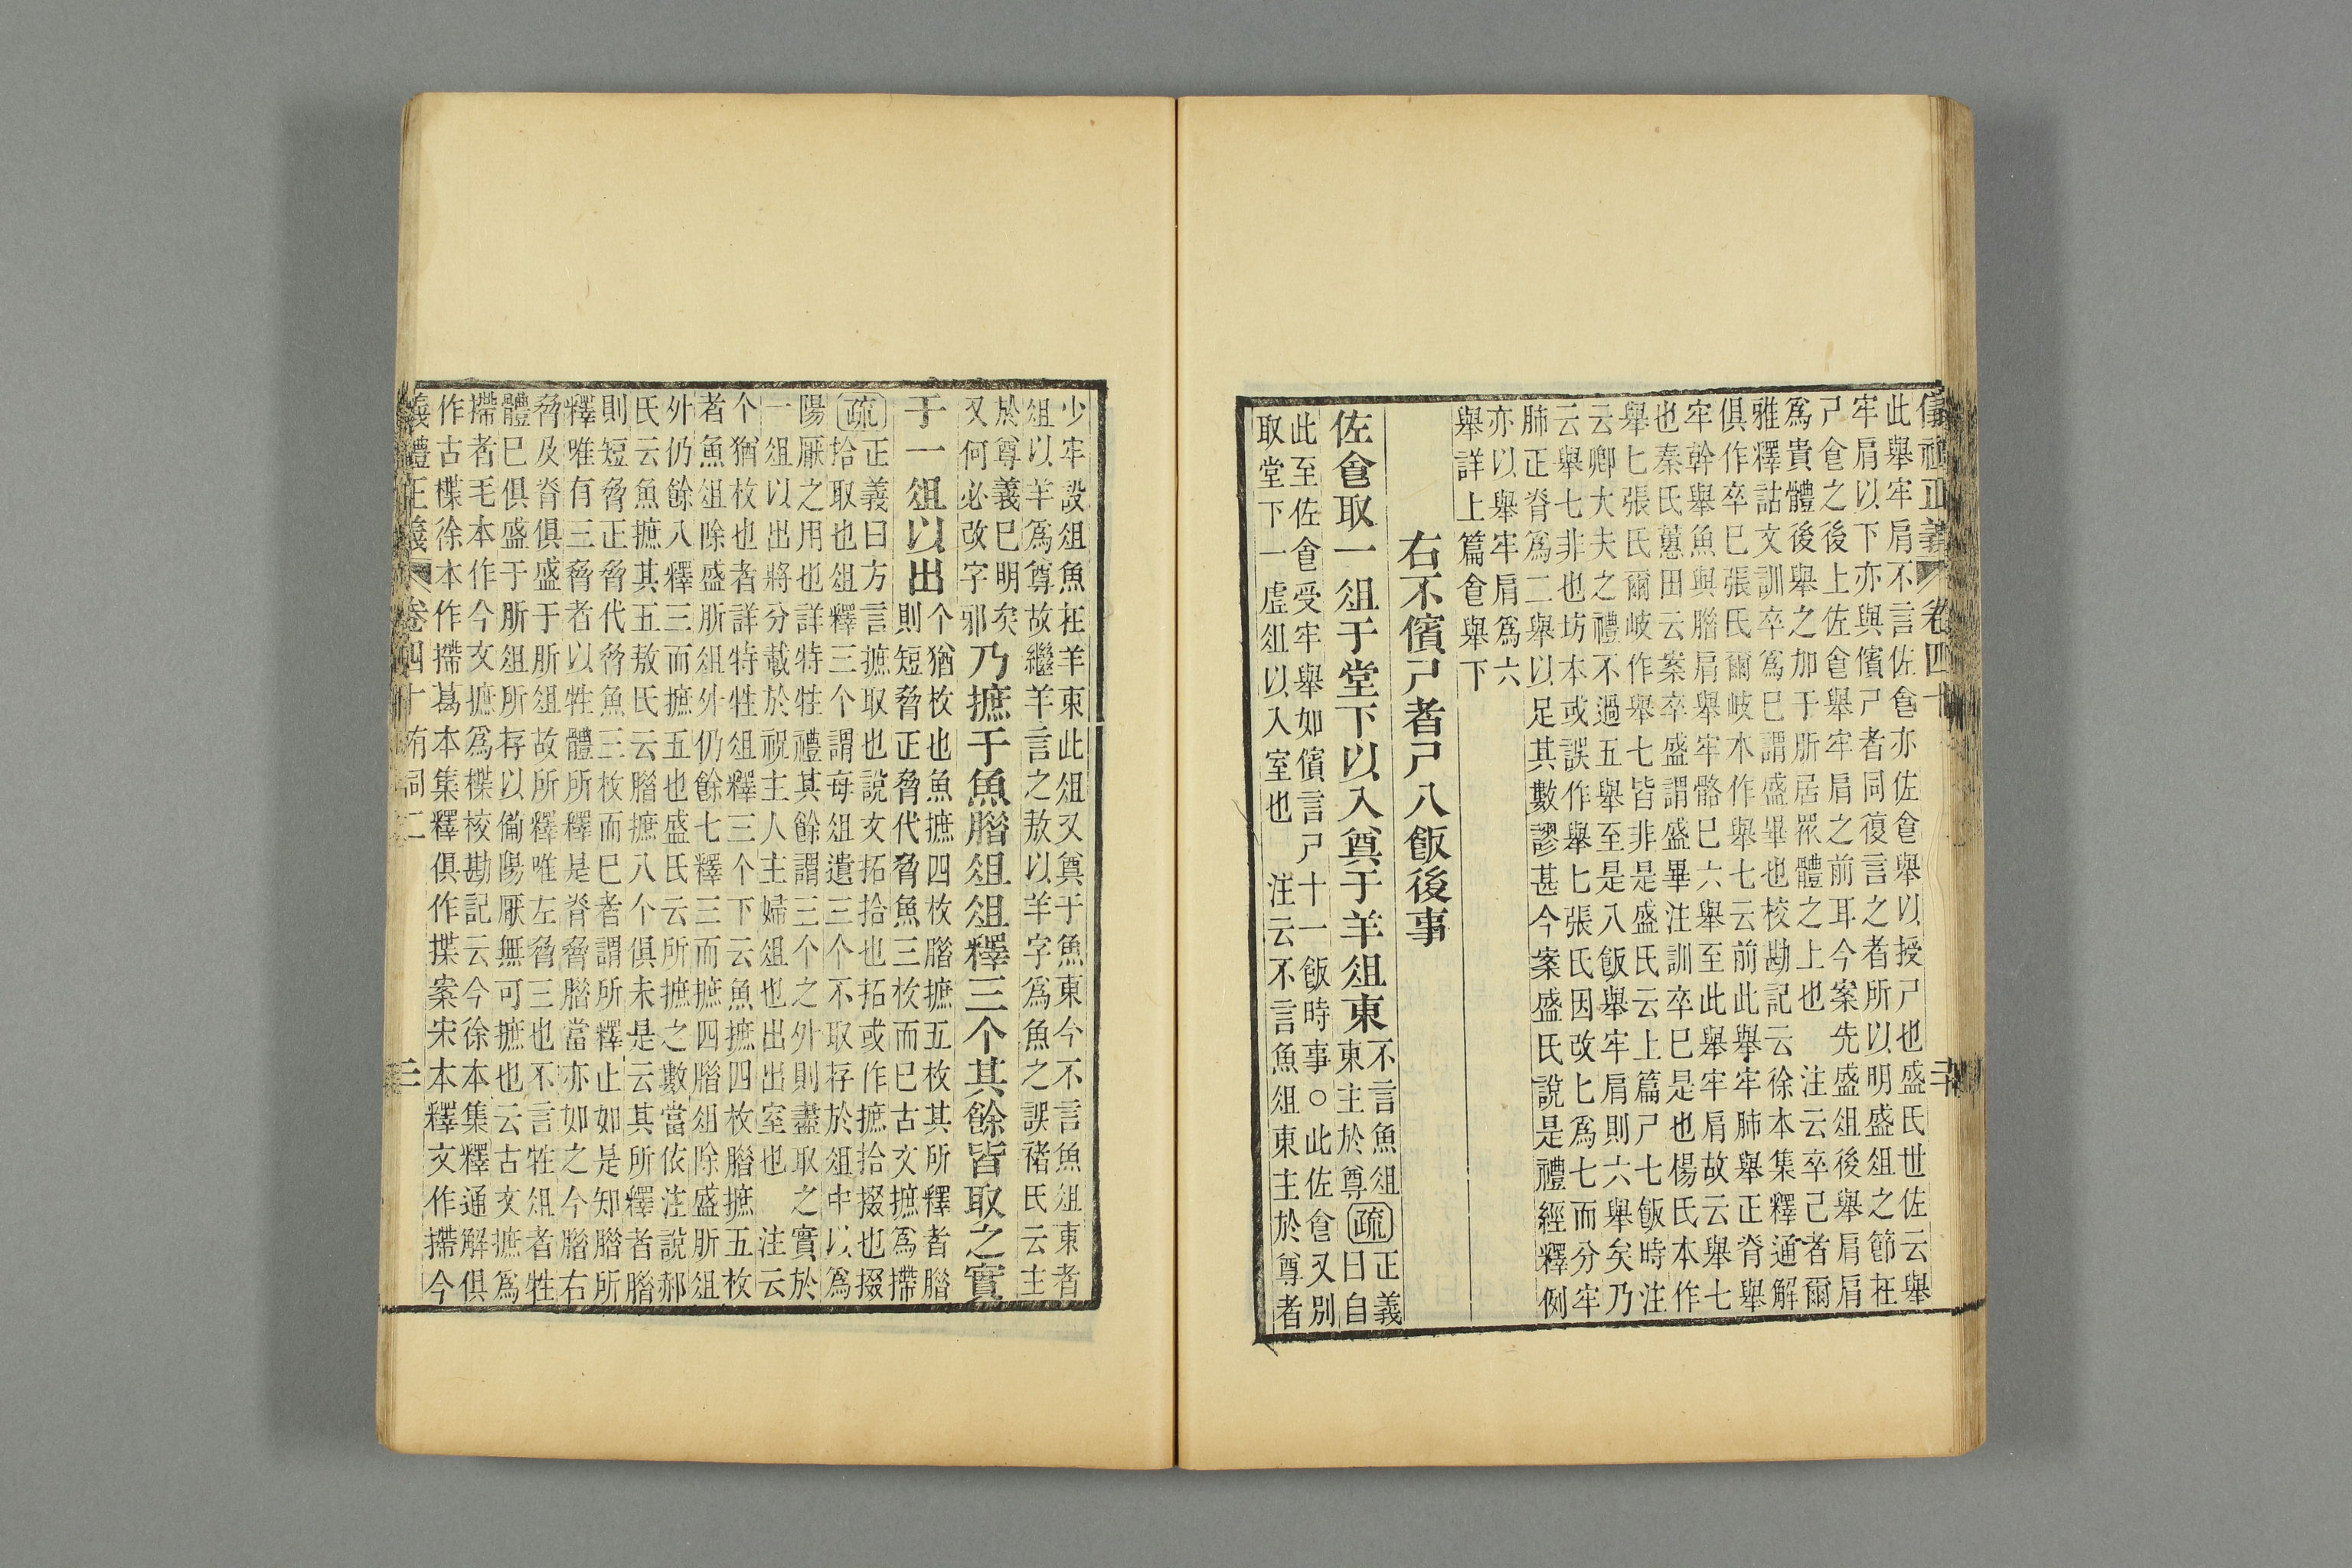 儀禮正義 卷四十
此舉牢肩不言佐㑹亦佐㑹舉以授尸也盛氏世佐云舉
牢肩以下亦與儐尸者同復言之者所以明盛俎之節在
尸㑹之後上佐㑹舉牢肩之前耳今案先盛俎後舉肩肩
爲貴體後舉之加于肵居衆體之上也 注云卒己者爾
雅釋詁文訓卒爲巳謂盛畢也校勘記云徐本集釋通解
俱作卒巳張氏爾岐本作舉七云前此舉牢肺舉正脊舉
牢幹舉魚與腊肩舉牢骼巳六舉至此舉牢肩故云舉七
也秦氏蕙田云案卒盛謂盛畢注訓卒巳是也楊氏本作
舉匕張氏爾岐作舉七皆非是盛氏云上篇尸七飯時注
云卿大夫之禮不過五舉至是八飯舉牢肩則六舉矣乃
云舉七非也坊本或誤作舉匕張氏因改匕爲七而分牢
肺正脊爲二舉以足其數謬甚今案盛氏說是禮經釋例
亦以舉牢肩爲六
舉詳上篇㑹舉下
右不儐尸者尸八飯後事
佐㑹取一俎于堂下以入奠于羊俎東
不言魚俎
東主於尊
疏
正義
曰自
此至佐㑹受牢舉如儐言尸十一飯時事○此佐㑹又別
取堂下一虛俎以入室也 注云不言魚俎東主於尊者
少牢設俎魚在羊東此俎又奠于魚東今不言魚俎東者
俎以羊爲尊故繼羊言之敖以羊字爲魚之誤褚氏云主
於尊義巳明矣
又何必改字邪
乃摭于魚腊俎俎釋三个其餘皆取之實
于一俎以出
个猶枚也魚摭四枚腊摭五枚其所釋者腊
則短脅正脅代脅魚三枚而巳古文摭爲摕
疏
正義曰方言摭取也說文拓拾也拓或作摭拾掇也掇
拾取也俎釋三个謂每俎遺三个不取存於俎中以爲
陽厭之用也詳特牲禮其餘謂三个之外則盡取之實於
一俎以出將分載於祝主人主婦俎也出出室也 注云
个猶枚也者詳特牲俎釋三个下云魚摭四枚腊摭五枚
者魚俎除盛肵俎外仍餘七釋三而摭四腊俎除盛肵俎
外仍餘八釋三而摭五也盛氏云所摭之數當依注說郝
氏云魚摭其五敖氏云腊摭八个俱未是云其所釋者腊
則短脅正脅代脅魚三枚而巳者謂所釋止如是知腊所
釋唯有三脅者以牲體所釋是脊脅腊當亦如之今腊右
脅及脊俱盛于肵俎故所釋唯左脅三也不言牲俎者牲
體巳俱盛于肵俎所存以備陽厭無可摭也云古文摭爲
摕者毛本作今文摭爲㩹校勘記云今徐本集釋通解俱
作古㩹徐本作摕葛本集釋俱作揲案宋本釋文作摕今
儀禮正義 卷四十 有司二